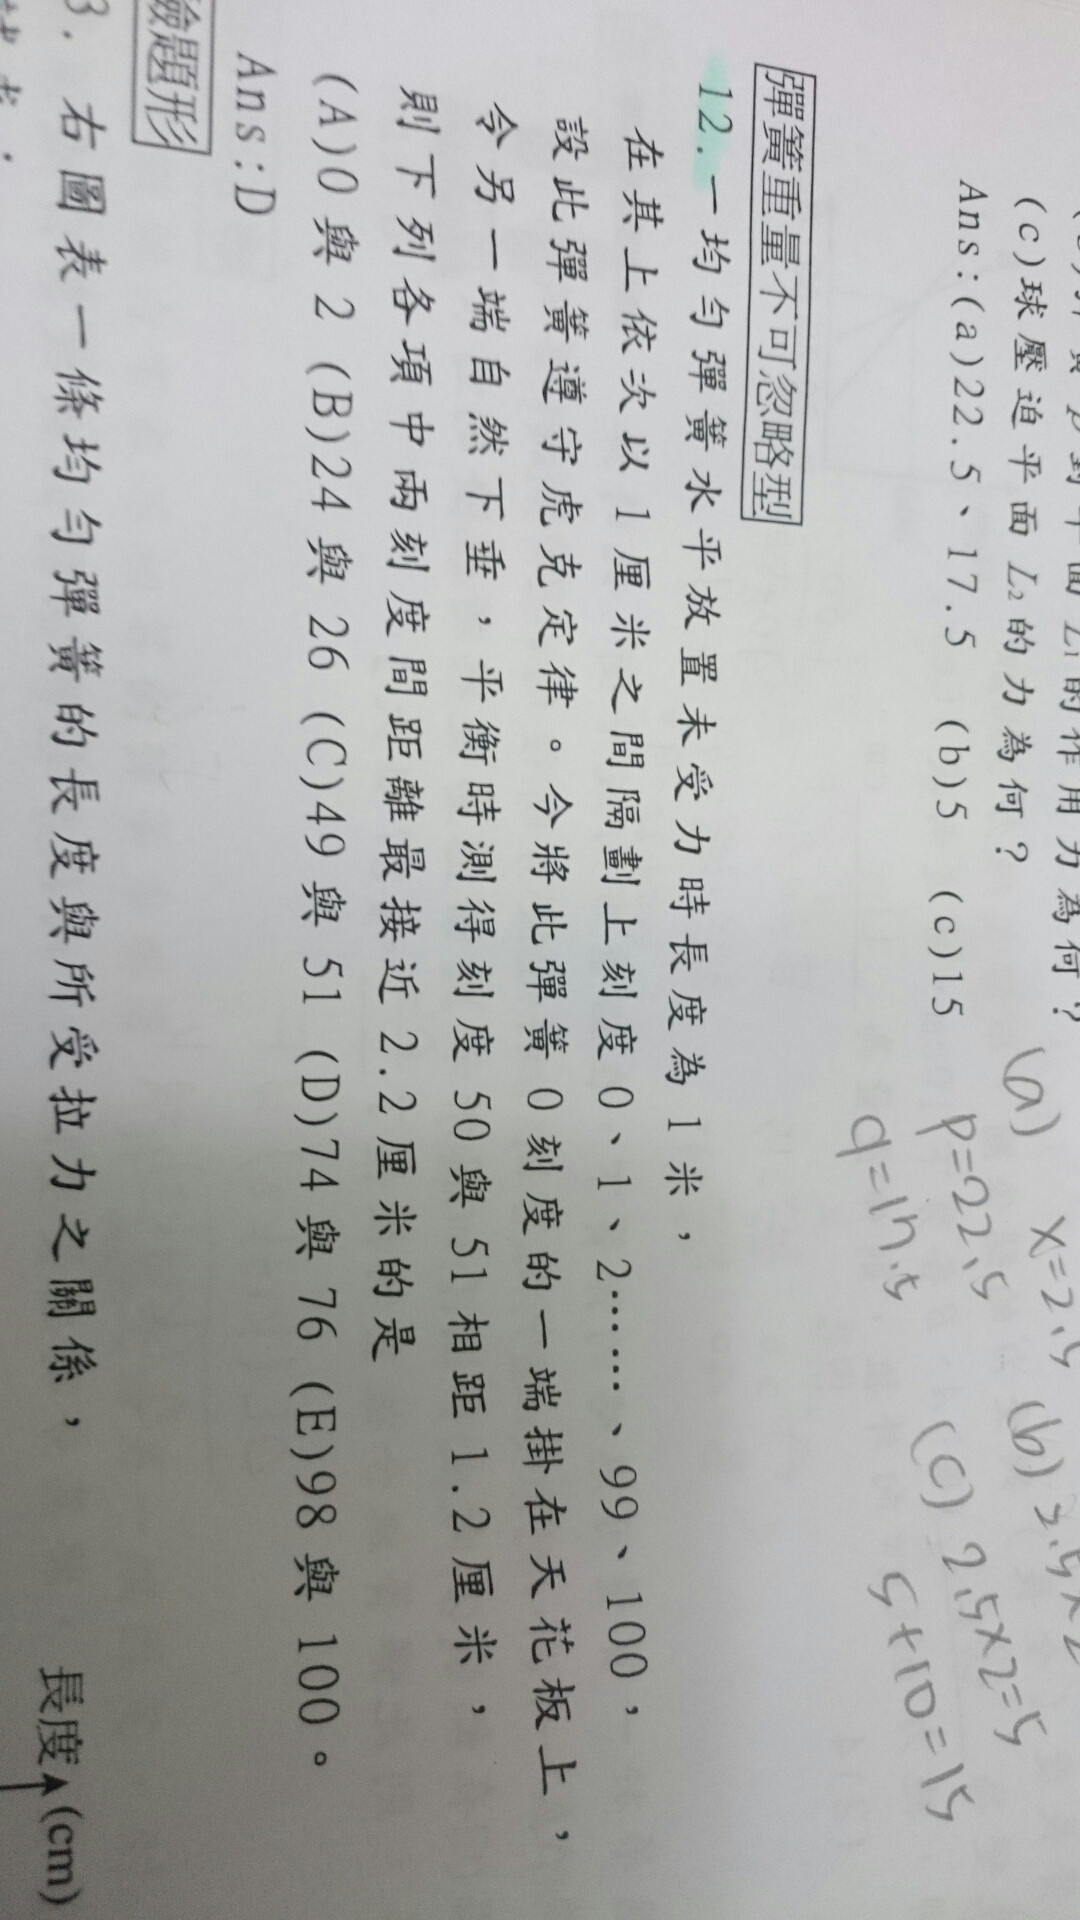 (c)球壓迫平面 L₂的力為何？
Ans:(a)22.5、17.5 (b)5 (c)15
(a) x=2.5
p=22.5
q=17.5
(b)
(c) 2.5×2=5
5+10=15
彈簧重量不可忽略型
12.一均勻彈簧水平放置未受力時長度為1米，
在其上依次以1厘米之間隔劃上刻度0、1、2……、99、100，
設此彈簧遵守虎克定律。今將此彈簧0刻度的一端掛在天花板上，
令另一端自然下垂，平衡時測得刻度50與51相距1.2厘米，
則下列各項中兩刻度間距離最接近2.2厘米的是
(A)0與2 (B)24與26 (C)49與51 (D)74與76 (E)98與100。
Ans:D
題形
3. 右圖表一條均勻彈簧的長度與所受拉力之關係，
長度(cm)